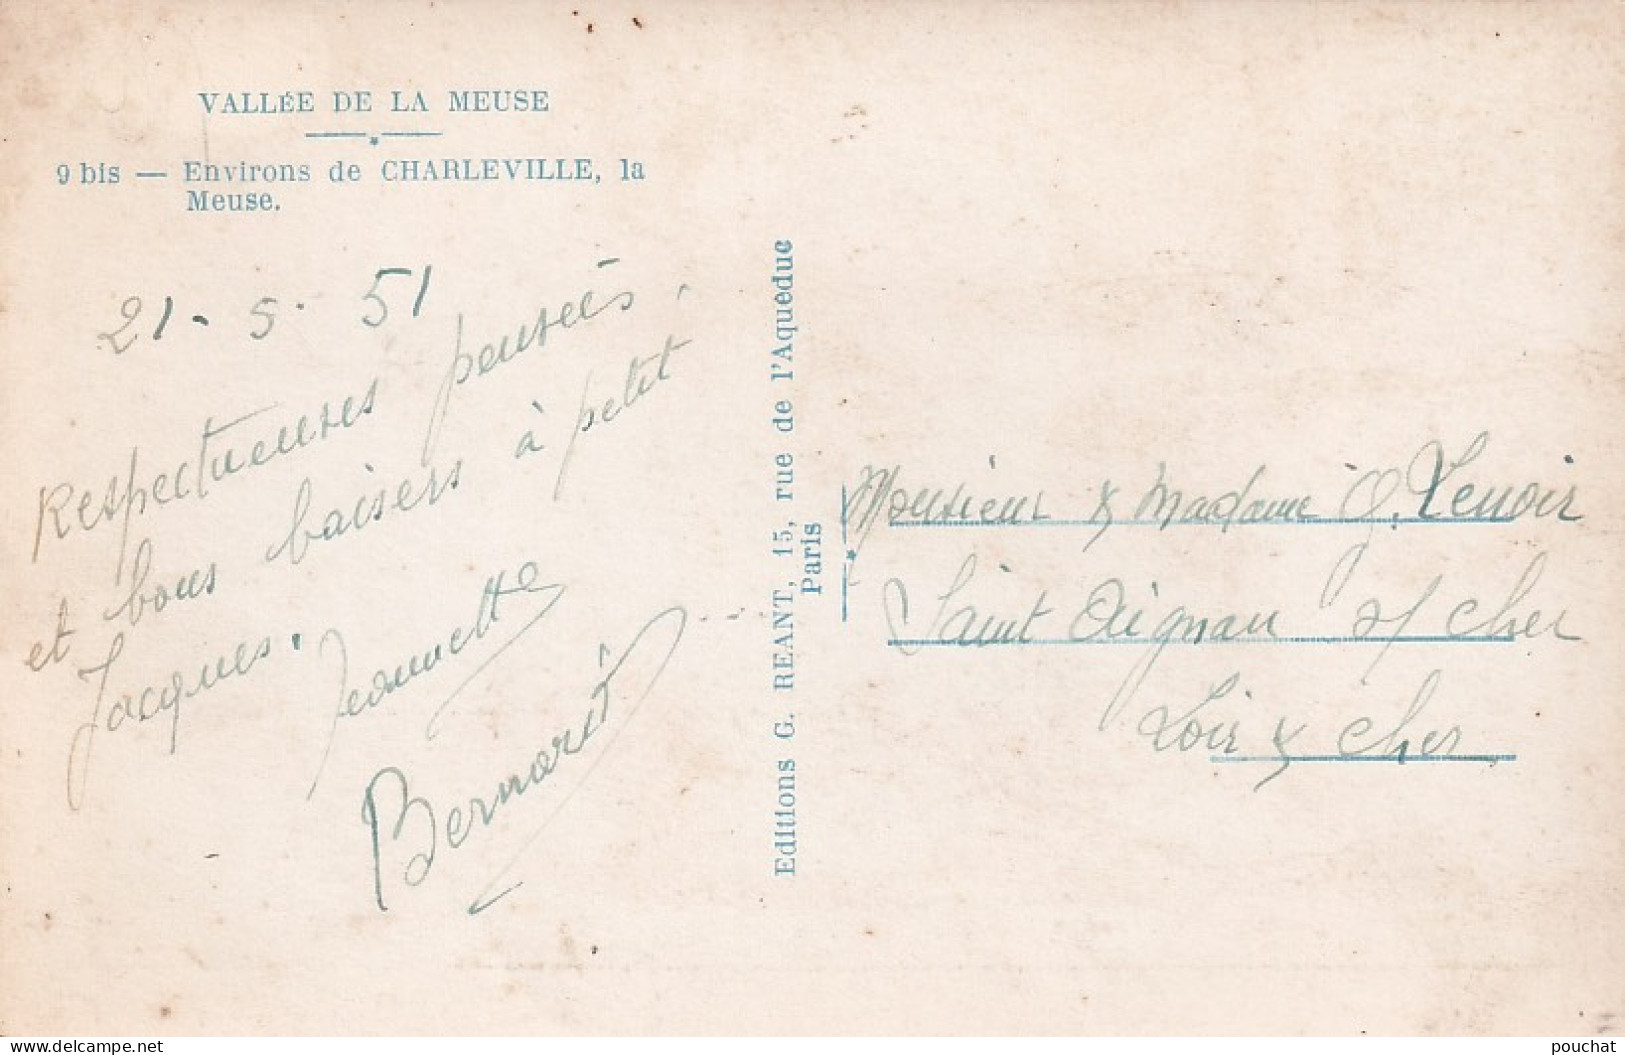 VALLÉE DE LA MEUSE
9 bis — Environs de CHARLEVILLE, la
Meuse.
21. 5. 51
Respectueuses pensées.
et bons baisers à petit
Jacques. Jeannette
Bernard
Editions G. REANT, 15, rue de l'Aqueduc
Paris
Monsieur & Madame G. Lenoir
Saint Aignan s/ Cher
Loir & Cher
delcampe.net
pouchat